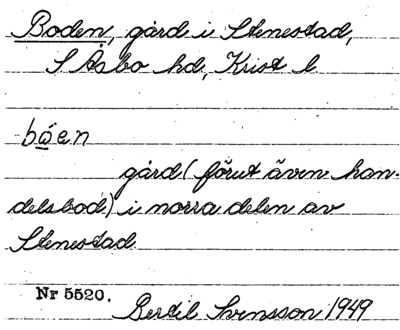 Boden, gård i Stenestad,
S Åsbo hd, Krist l
bóen
gård (förut även han-
delsbod) i norra delen av
Stenestad
Nr 5520. Bertil Svensson 1949